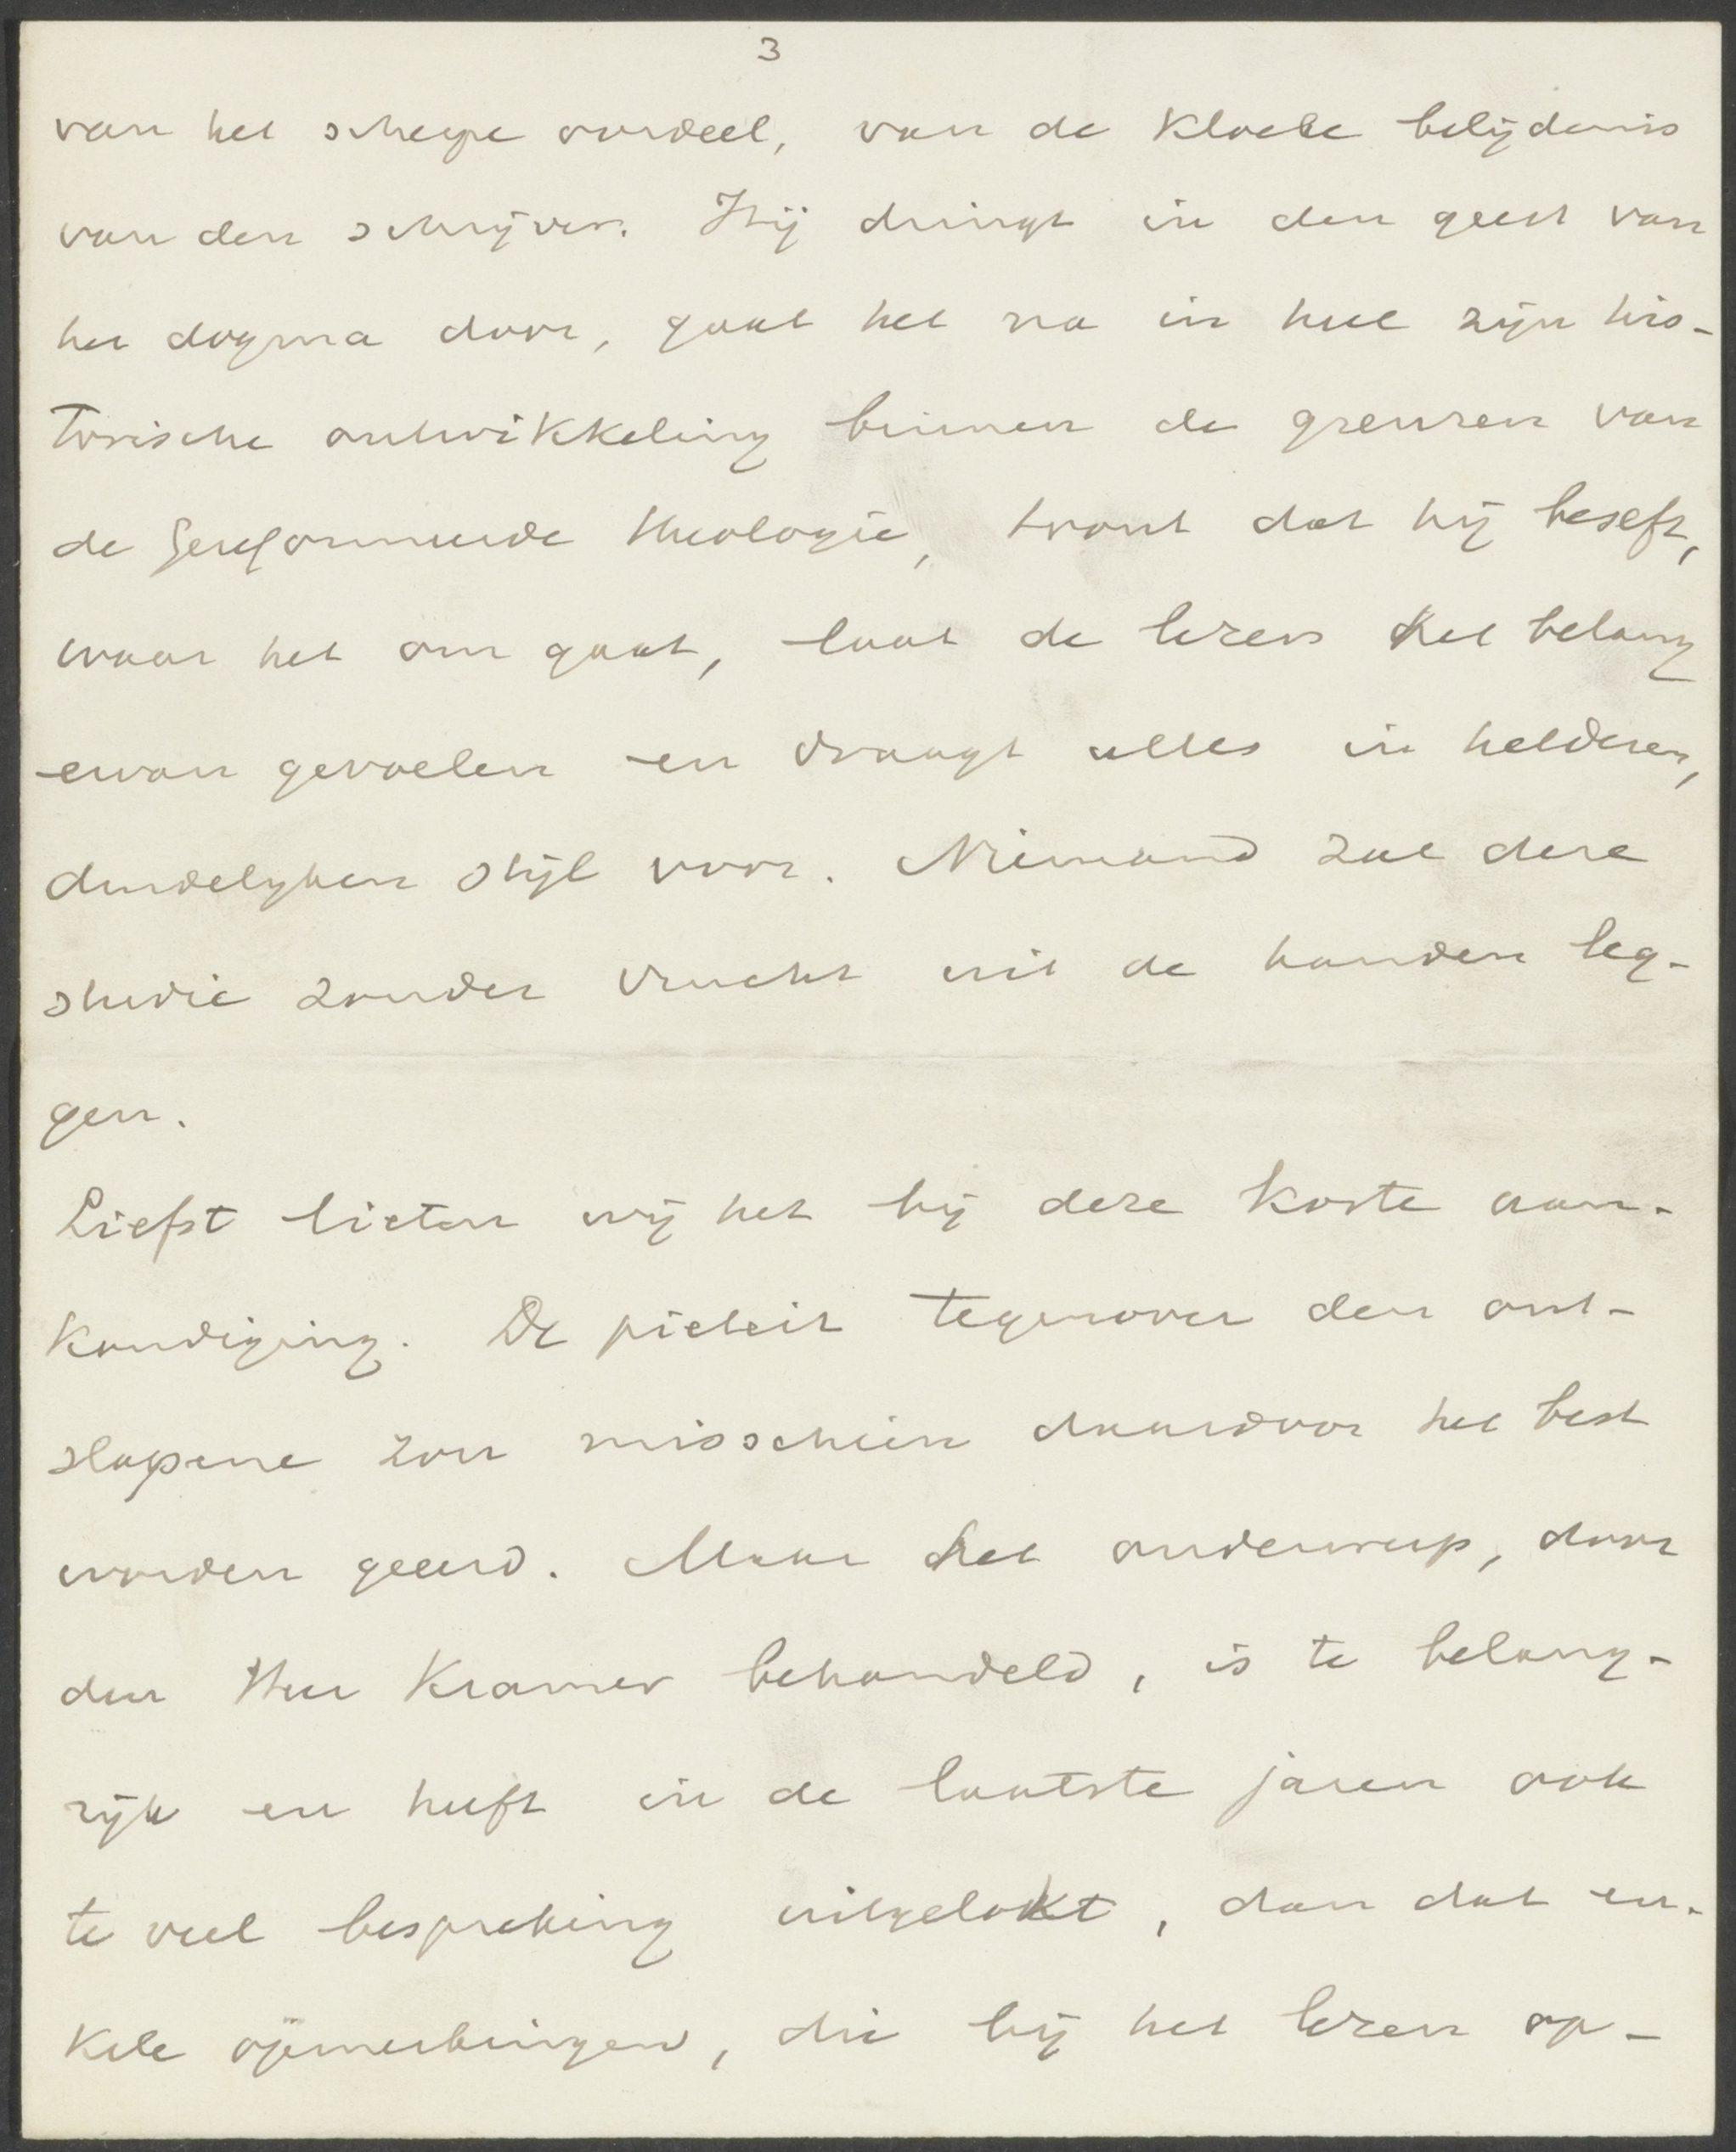 3
van het scherpe oordeel, van de kloeke belijdenis
van den schrijver. Hij dringt in den geest van
het dogma door, gaat het na in heel zijn his-
torische ontwikkeling binnen de grenzen van
de Gereformeerde theologie, toont dat hij beseft,
waar het om gaat, laat de lezers het belang
ervan gevoelen en draagt alles in helderen,
duidelijken stijl voor. Niemand zal deze
studie zonder vrucht uit de handen leg-
gen.
Liefst lieten wij het bij deze korte aan-
kondiging. De piëteit tegenover den ont-
slapene zou misschien daardoor het best
worden geëerd. Maar het onderwerp, door
den Heer Kramer behandeld, is te belang-
rijk en heeft in de laatste jaren ook
te veel bespreking uitgelokt, dan dat en-
kele opmerkingen, die bij het lezen op-